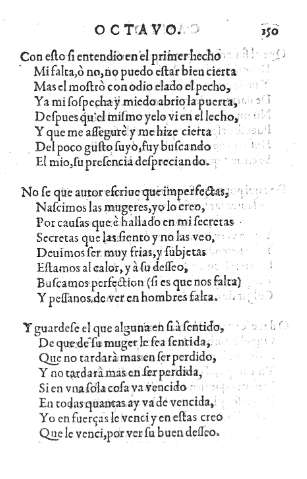 OCTAVO. 150
Con esto si entendio en el primer hecho
Mi falta, ò no, no puedo estar bien cierta
Mas el mostrò con odio elado el pecho,
Ya mi sospecha y miedo abrio la puerta,
Despues qu'el mismo yelo vi en el lecho,
Y que me assegurè y me hize cierta
Del poco gusto suyo, fuy buscando
El mio, su presencia despreciando.
No se que autor escriue que imperfectas,
Nascimos las mugeres, yo lo creo,
Por causas que è hallado en mi secretas
Secretas que las siento y no las veo,
Deuimos ser muy frias, y subjetas
Estamos al calor, y à su desseo,
Buscamos perfection (si es que nos falta)
Y pessanos, de ver en hombres falta.
Y guardese el que alguna en si à sentido,
De que de su muger le sea sentida,
Que no tardarà mas en ser perdido,
Y no tardarà mas en ser perdida,
Si en vna sola cosa va vencido
En todas quantas ay va de vencida,
Yo en fuerças le venci y en estas creo
Que le venci, por ver su buen desseo.